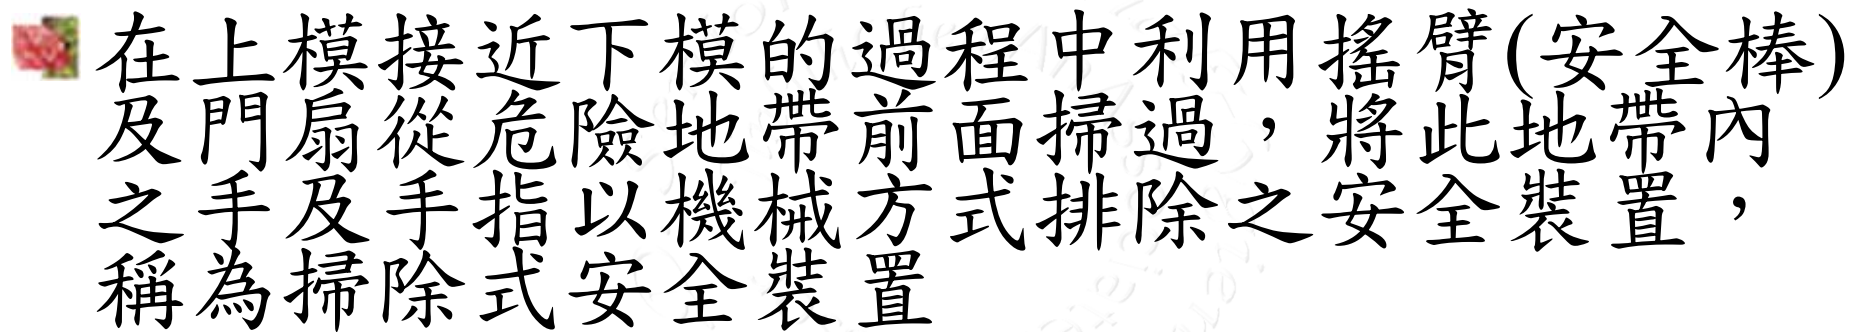 在上模接近下模的過程中利用搖臂(安全棒)
及門扇從危險地帶前面掃過，將此地帶內
之手及手指以機械方式排除之安全裝置，
稱為掃除式安全裝置